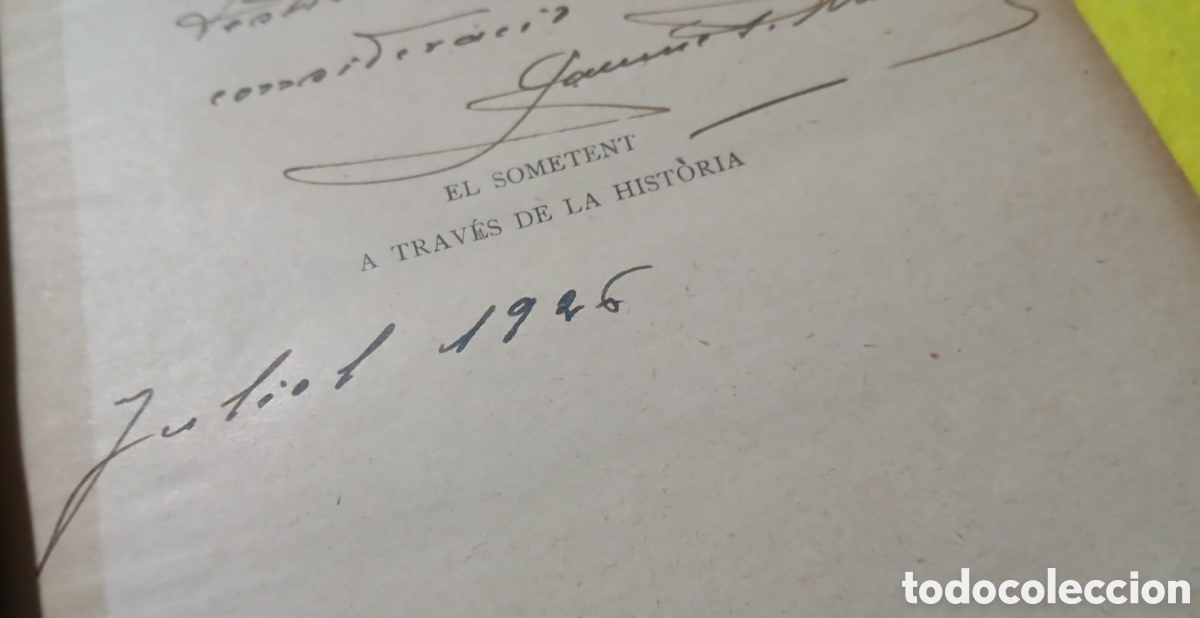 consideració
Jaume
EL SOMETENT
A TRAVÉS DE LA HISTÒRIA
Juliol 1926
todocoleccion